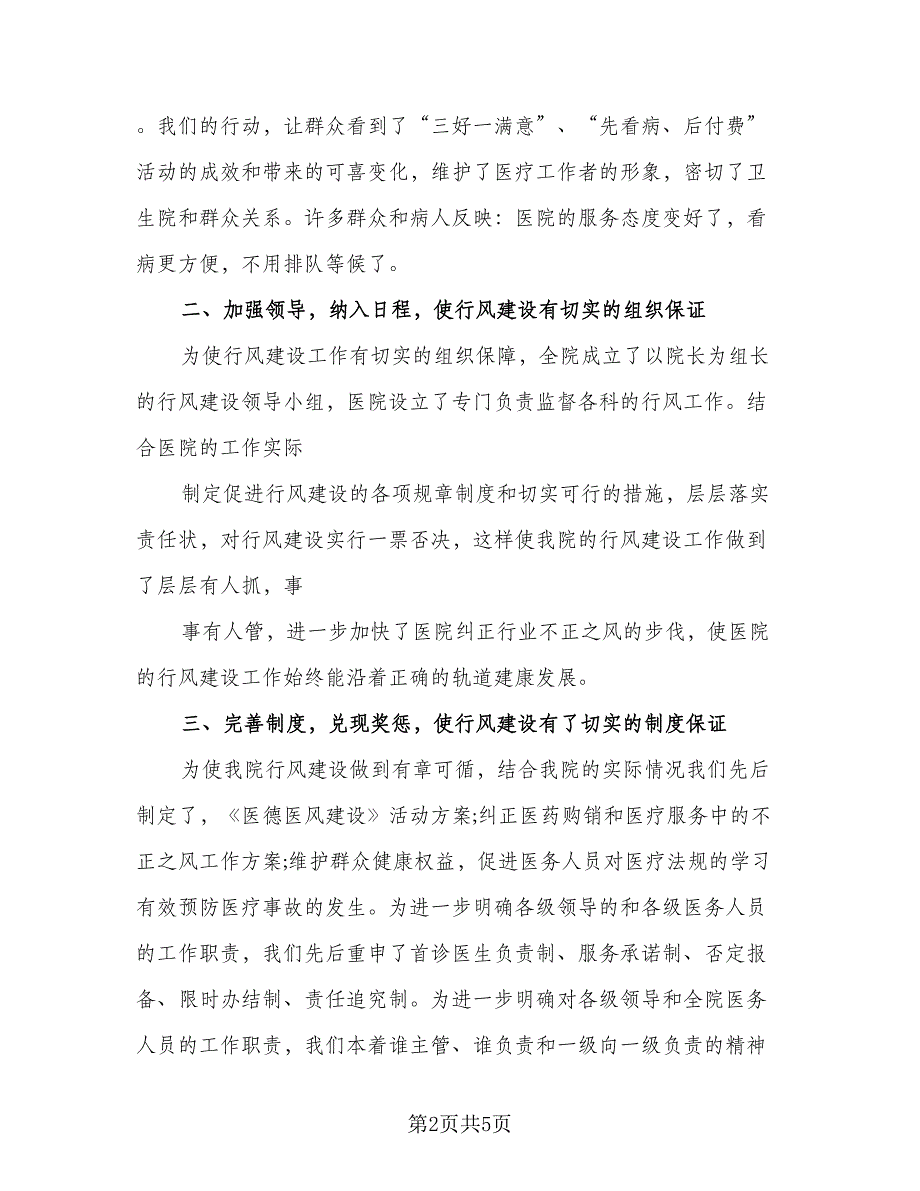 。我们的行动，让群众看到了“三好一满意”、“先看病、后付费”
活动的成效和带来的可喜变化，维护了医疗工作者的形象，密切了卫
生院和群众关系。许多群众和病人反映：医院的服务态度变好了，看
病更方便，不用排队等候了。
二、加强领导，纳入日程，使行风建设有切实的组织保证
为使行风建设工作有切实的组织保障，全院成立了以院长为组长
的行风建设领导小组，医院设立了专门负责监督各科的行风工作。结
合医院的工作实际
制定促进行风建设的各项规章制度和切实可行的措施，层层落实
责任状，对行风建设实行一票否决，这样使我院的行风建设工作做到
了层层有人抓，事
事有人管，进一步加快了医院纠正行业不正之风的步伐，使医院
的行风建设工作始终能沿着正确的轨道建康发展。
三、完善制度，兑现奖惩，使行风建设有了切实的制度保证
为使我院行风建设做到有章可循，结合我院的实际情况我们先后
制定了，《医德医风建设》活动方案;纠正医药购销和医疗服务中的不
正之风工作方案;维护群众健康权益，促进医务人员对医疗法规的学习
有效预防医疗事故的发生。为进一步明确各级领导的和各级医务人员
的工作职责，我们先后重申了首诊医生负责制、服务承诺制、否定报
备、限时办结制、责任追究制。为进一步明确对各级领导和全院医务
人员的工作职责，我们本着谁主管、谁负责和一级向一级负责的精神
第2页共5页